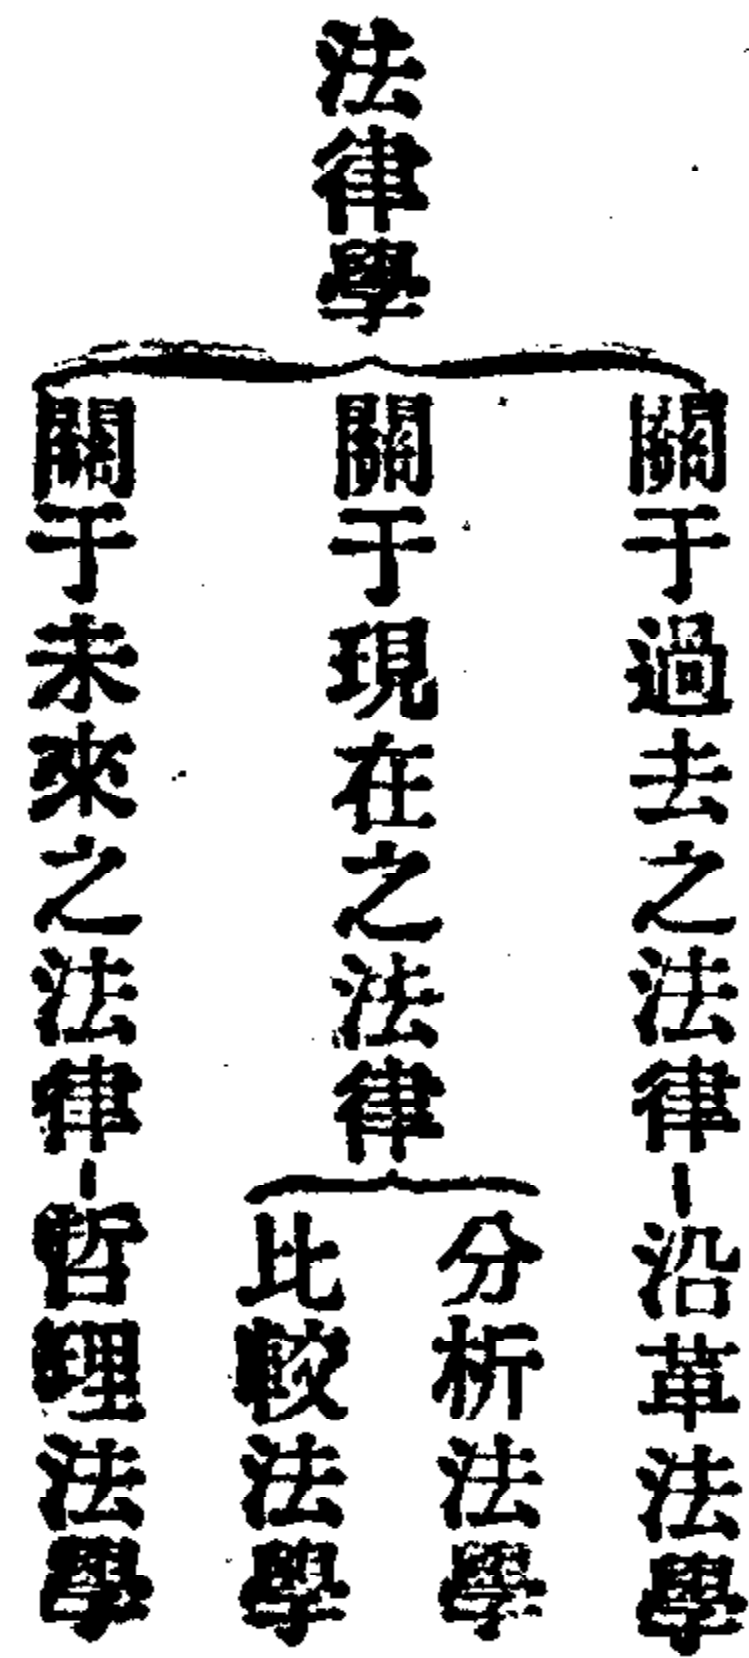 法律學
關于過去之法律
沿革法學
關于現在之法律
分析法學
比較法學
關于未來之法律
哲理法學